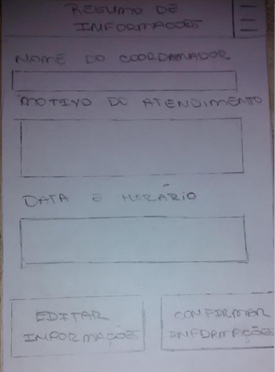 RESUMO DE
INFORMAÇÕES
NOME DO COORDANADOR
MOTIVO DO ATENDIMENTO
DATA E HORÁRIO
EDITAR
INFORMAÇÕES
CONFIRMAR
INFORMAÇÕES